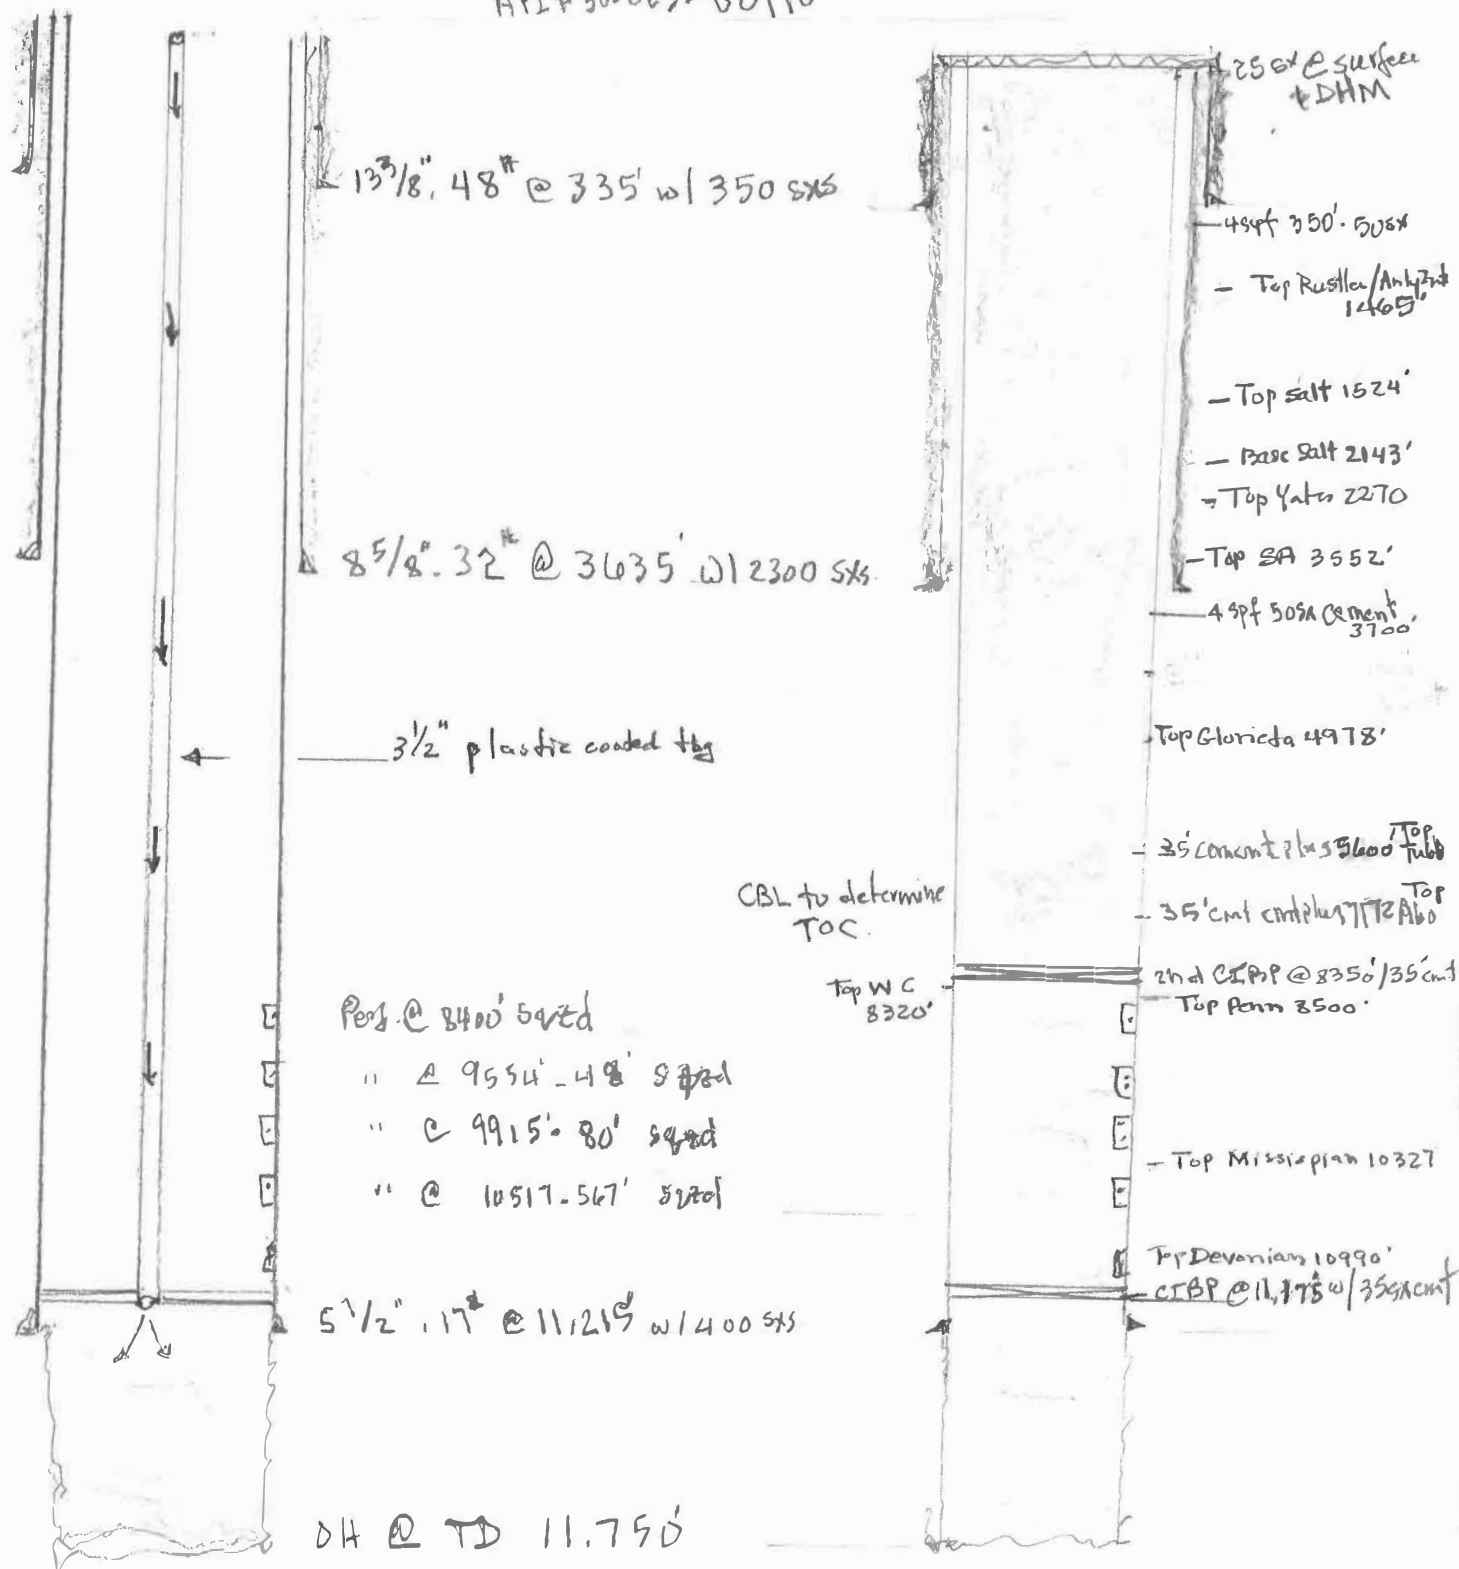 13 3/8", 48# @ 335' w/ 350 sxs
8 5/8". 32# @ 3635' w/ 2300 sxs.
3 1/2" plastic coated tbg
CBL to determine
TOC.
Top WC
8320'
Perf. @ 8400' sqzd
" @ 9554'-48' sqzd
" @ 9915'-80' sqzd
" @ 10517-567' sqzd
5 1/2", 17# @ 11,215' w/ 400 sxs
OH @ TD 11,750'
25 sx @ surface
+ DHM
4spf 350'. 50sx
Top Rustler/Anhy
1465'
Top salt 1524'
Base Salt 2143'
Top Yates 2270
Top SA 3552'
4 spf 50sx cement
3700'
Top Glorieta 4978'
35' cement plus 5600' Top
Tubb
35' cmt cmt plus 7172 Top
Abo
2nd CIBP @ 8350'/35'cmt
Top Penn 8500'
Top Missispian 10327
Top Devonian 10990'
CIBP @ 11,175' w/ 35sx cmt